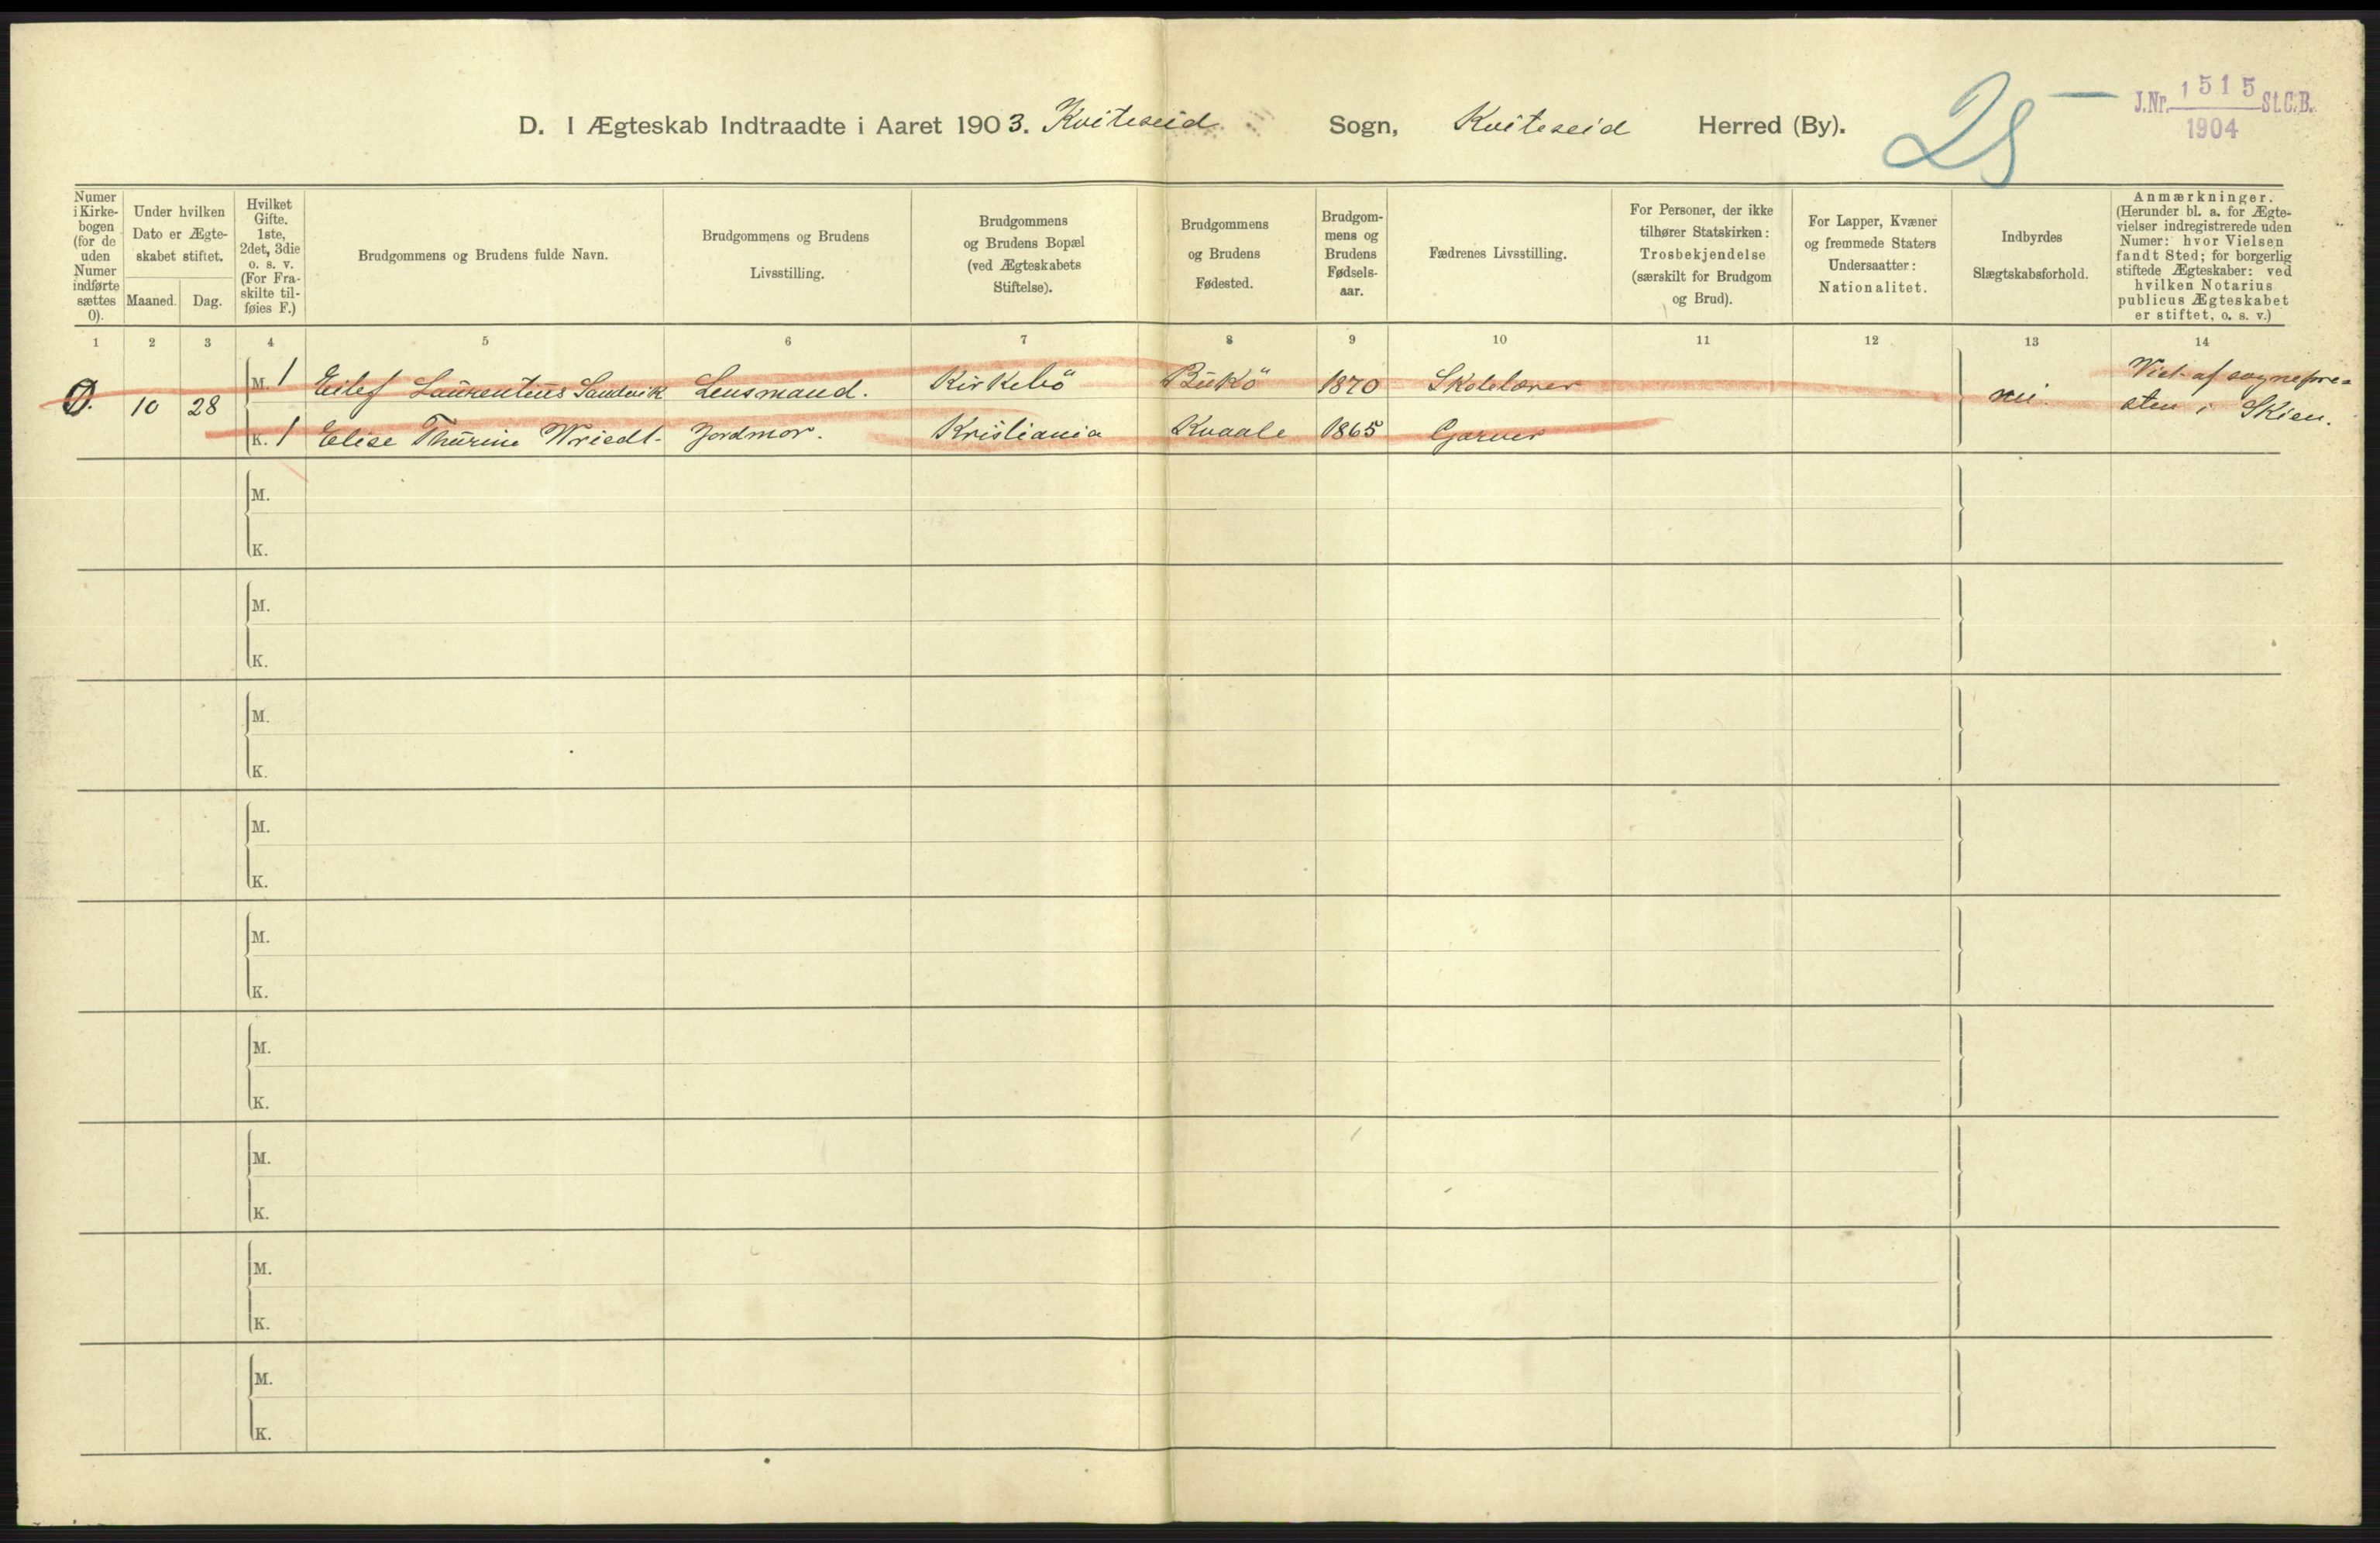 D. I Ægteskab Indtraadte i Aaret 1903. Kviteseid Sogn, Kviteseid Herred (By).
28
J.Nr. 1515 St.C.B.
1904
Numer
i Kirke-
bogen
(for de
uden
Numer
indførte
sættes
0).
Under hvilken
Dato er Ægte-
skabet stiftet.
Maaned. Dag.
Hvilket
Gifte.
1ste,
2det, 3die
o. s. v.
(For Fra-
skilte til-
føies F.)
Brudgommens og Brudens fulde Navn.
Brudgommens og Brudens
Livsstilling.
Brudgommens
og Brudens Bopæl
(ved Ægteskabets
Stiftelse).
Brudgommens
og Brudens
Fødested.
Brudgom-
mens og
Brudens
Fødsels-
aar.
Fædrenes Livsstilling.
For Personer, der ikke
tilhører Statskirken:
Trosbekjendelse
(særskilt for Brudgom
og Brud).
For Lapper, Kvæner
og fremmede Staters
Undersaatter:
Nationalitet.
Indbyrdes
Slægtskabsforhold.
Anmærkninger.
(Herunder bl. a. for Ægte-
vielser indregistrerede uden
Numer: hvor Vielsen
fandt Sted; for borgerlig
stiftede Ægteskaber: ved
hvilken Notarius
publicus Ægteskabet
er stiftet, o. s. v.)
1 2 3 4 5 6 7 8 9 10 11 12 13 14
0. 10 28 M. 1 Eilef Laurentius Sandvik Lensmand. Kirkebö 1870 Skolelærer nei. Viet af sognepre=
sten i Skien.
K. 1 Elise Thurine Wriedt. Jordmor. Kristiania Kvaale 1865 Garver
M.
K.
M.
K.
M.
K.
M.
K.
M.
K.
M.
K.
M.
K.
M.
K.
M.
K.